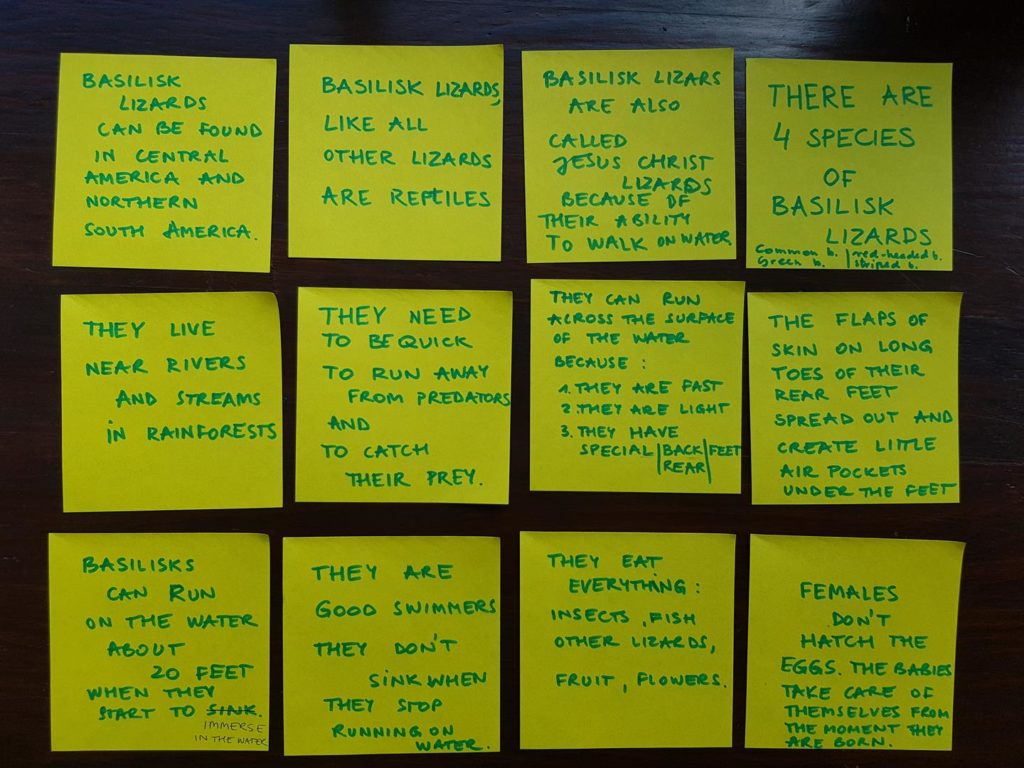 BASILISK
LIZARDS
CAN BE FOUND
IN CENTRAL
AMERICA AND
NORTHERN
SOUTH AMERICA.
BASILISK LIZARDS,
LIKE ALL
OTHER LIZARDS
ARE REPTILES
BASILISK LIZARS
ARE ALSO
CALLED
JESUS CHRIST
LIZARDS
BECAUSE OF
THEIR ABILITY
TO WALK ON WATER
THERE ARE
4 SPECIES
OF
BASILISK
LIZARDS
Common b. | red-headed b.
Green b. | striped b.
THEY LIVE
NEAR RIVERS
AND STREAMS
iN RAINFORESTS
THEY NEED
TO BE QUICK
TO RUN AWAY
FROM PREDATORS
AND
TO CATCH
THEIR PREY.
THEY CAN RUN
ACROSS THE SURFACE
OF THE WATER
BECAUSE :
1. THEY ARE FAST
2. THEY ARE LIGHT
3. THEY HAVE
SPECIAL | BACK | FEET
REAR
THE FLAPS OF
SKIN ON LONG
TOES OF THEIR
REAR FEET
SPREAD OUT AND
CREATE LITTLE
AIR POCKETS
UNDER THE FEET
BASILISKS
CAN RUN
ON THE WATER
ABOUT
20 FEET
WHEN THEY
START TO SINK.
IMMERSE
IN THE WATER
THEY ARE
GOOD SWIMMERS
THEY DON'T
SINK WHEN
THEY STOP
RUNNING ON
WATER.
THEY EAT
EVERYTHING :
INSECTS, FISH
OTHER LIZARDS,
FRUIT, FLOWERS.
FEMALES
DON'T
HATCH THE
EGGS. THE BABIES
TAKE CARE OF
THEMSELVES FROM
THE MOMENT THEY
ARE BORN.